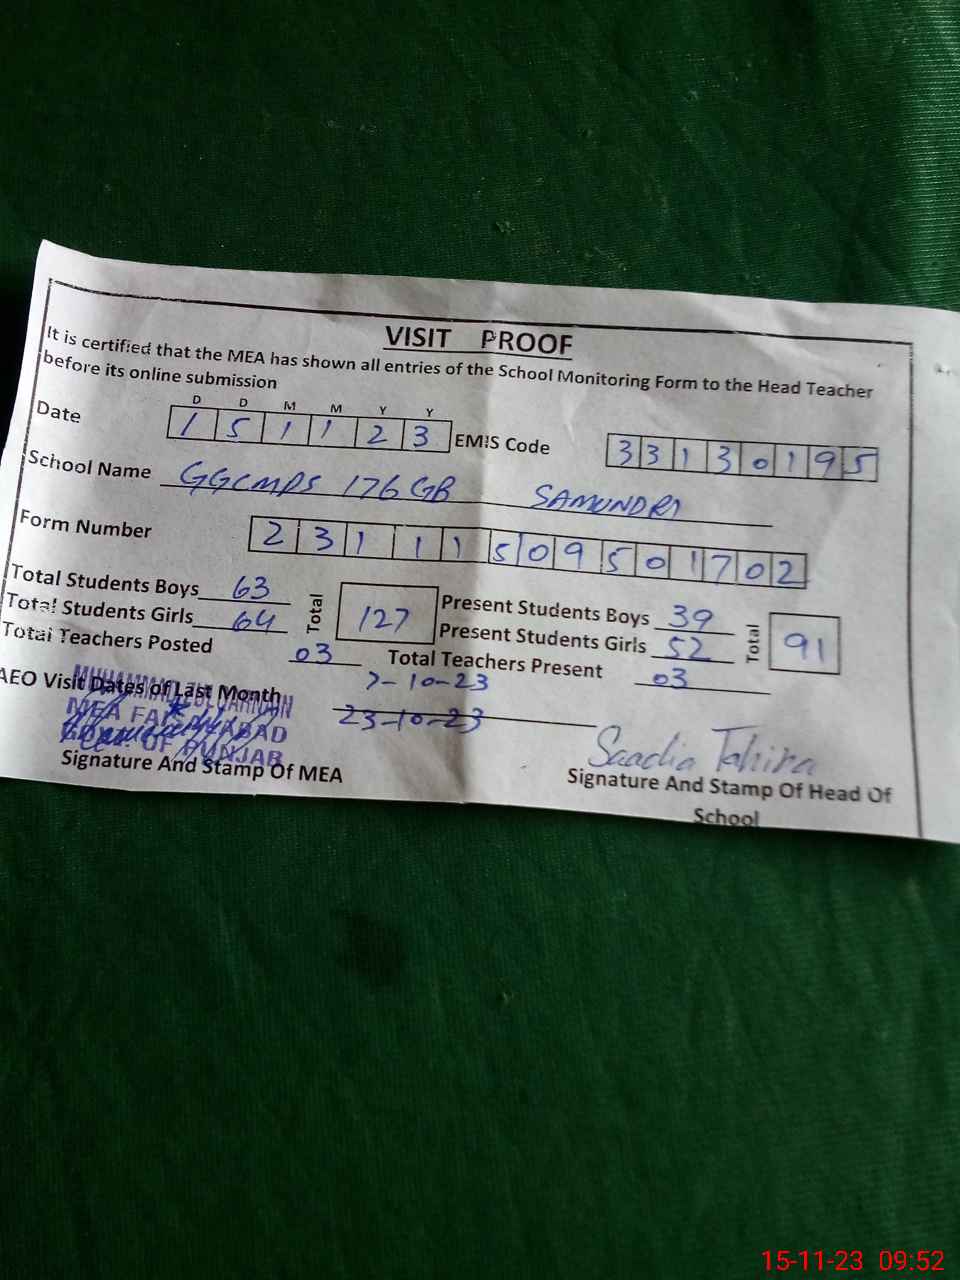 VISIT PROOF
It is certified that the MEA has shown all entries of the School Monitoring Form to the Head Teacher
before its online submission
D D M M Y Y
Date 1 5 1 1 2 3 EMIS Code 3 3 1 3 0 1 9 5
School Name GGCMPS 176 GB SAMUNDRI
Form Number 2 3 1 1 1 5 0 9 5 0 1 7 0 2
Total Students Boys 63 Total 127 Present Students Boys 39 Total 91
Total Students Girls 64 Present Students Girls 52
Total Teachers Posted 03 Total Teachers Present 03
AEO Visit Dates of Last Month 7-10-23
23-10-23
MUHAMMAD ZULQARNAN
MEA FAISALABAD
GOVT. OF PUNJAB
Saadia Tahira
Signature And Stamp Of MEA Signature And Stamp Of Head Of
School
15-11-23 09:52